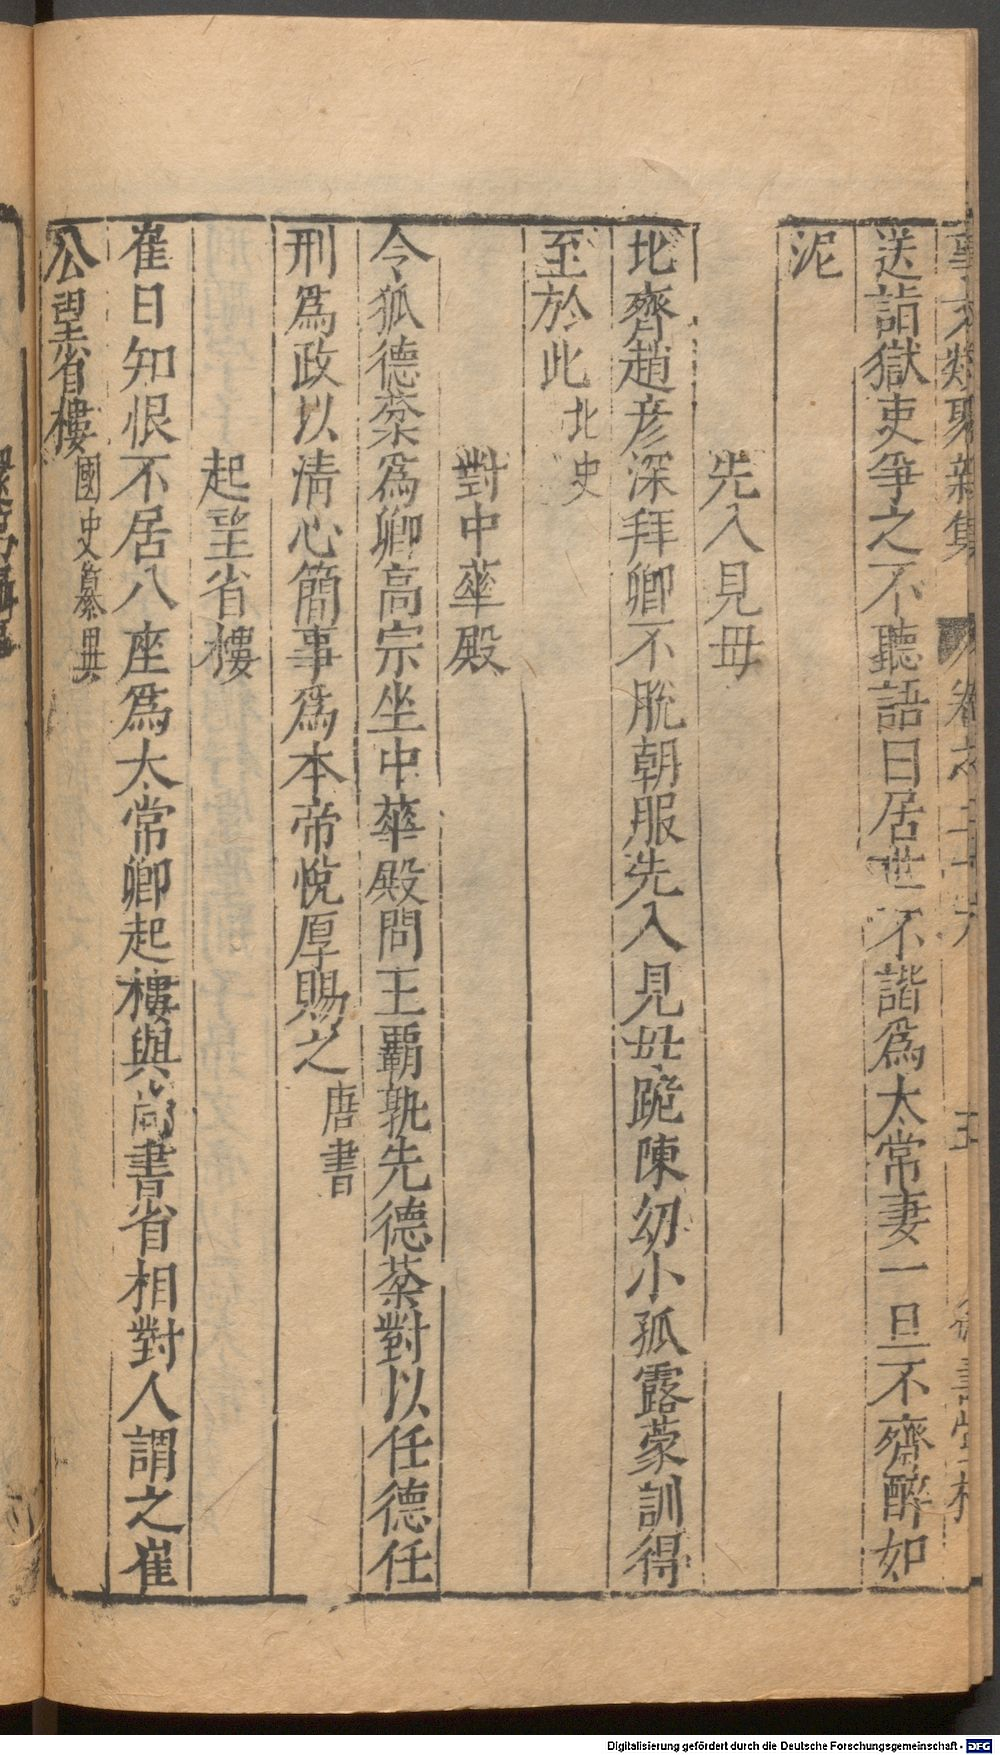 送詣獄吏爭之不聽語曰居世不諧爲太常妻一旦不齋醉如
泥
先入見毋
北齊趙彦深拜卿不脫朝服先入見毋跪陳幼小孤露蒙訓得
至於此北史
對中華殿
令狐德棻爲卿高宗坐中華殿問王覇孰先德棻對以任德任
刑爲政以清心簡事爲本帝悅厚賜之唐書
起望省樓
崔日知恨不居八座爲太常卿起樓與尚書省相對人謂之崔
公望省樓國史纂異
Digitalisierung gefördert durch die Deutsche Forschungsgemeinschaft - DFG